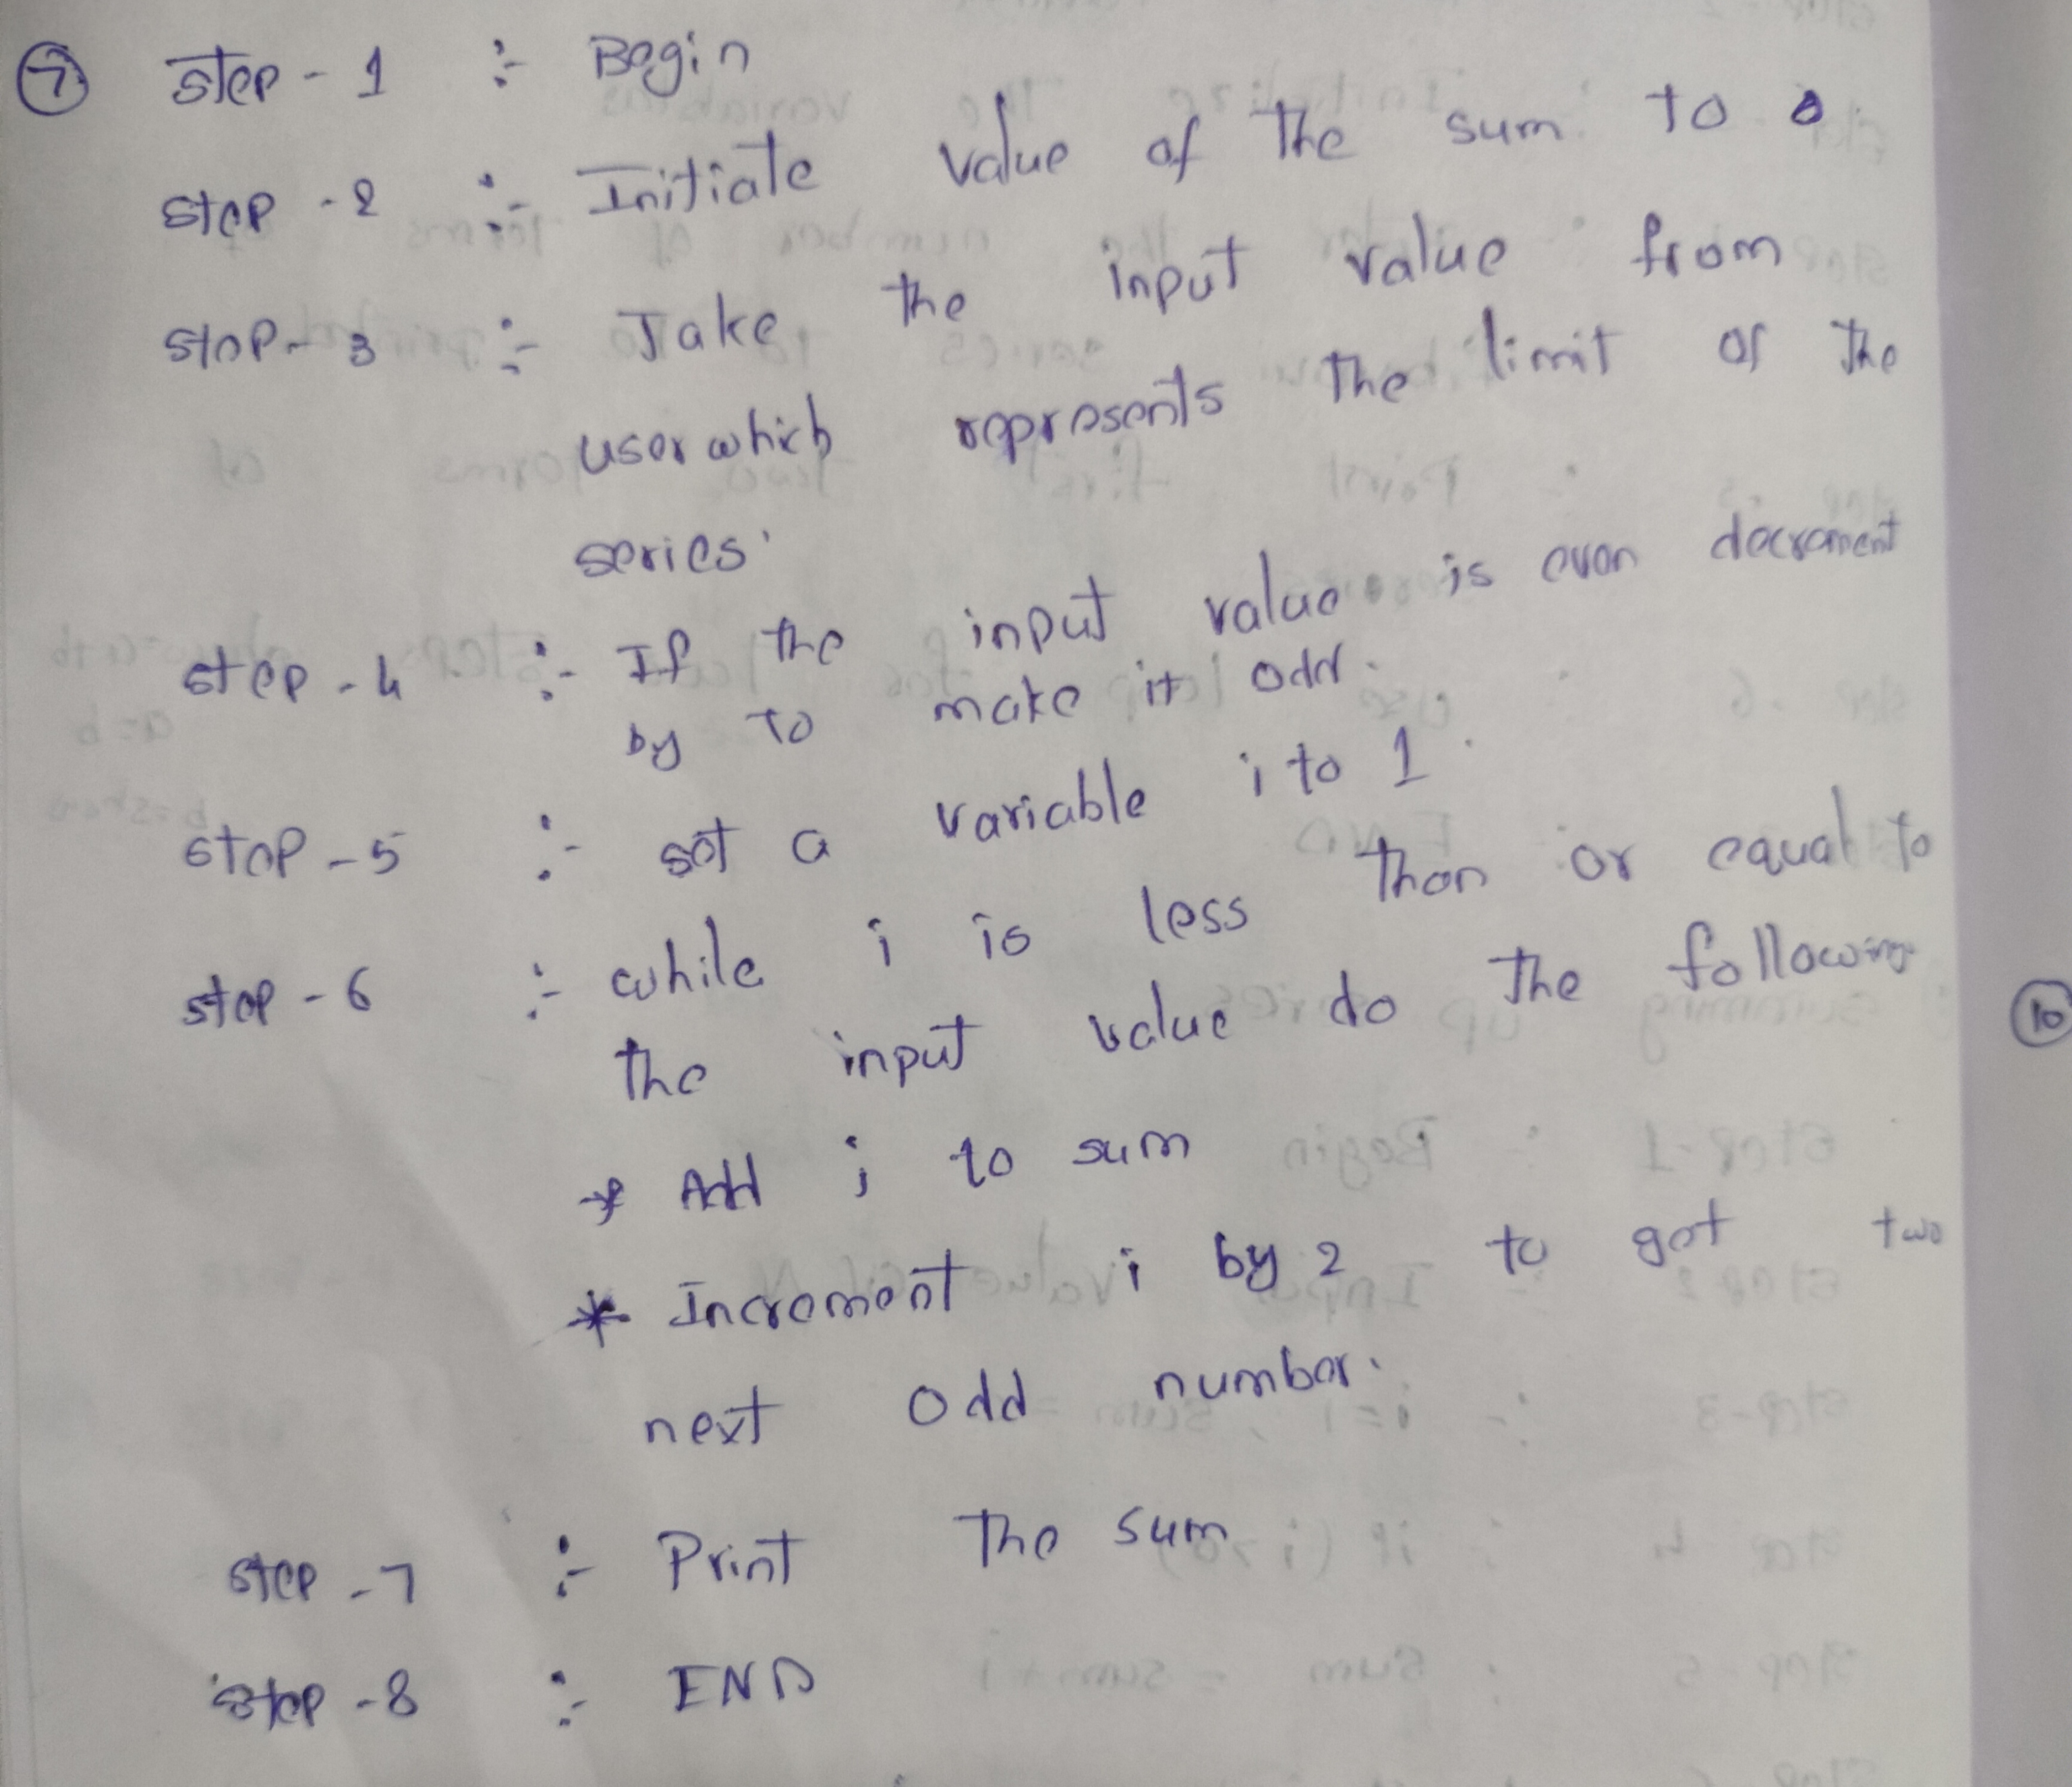 7 Step - 1 :- Begin
Step - 2 :- Initiate value of the sum to 0
Step - 3 :- Take the input value from
user which represents the limit of the
series.
Step - 4 :- If the input value is even decrement
by to make it odd.
Step - 5 :- set a variable i to 1.
Step - 6 :- while i is less than or equal to
the input value do the following
* Add i to sum
* Increment i by 2 to get two
next odd number.
Step - 7 :- Print the sum
Step - 8 :- END
10